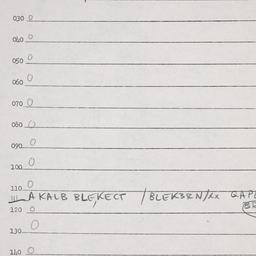 030 0
040 0
050 0
060 0
070 0
080 0
090 0
100 0
110 0
111 AKALB BLEKECT / BLEKBRN/Xx
120 0
130 0
140 0